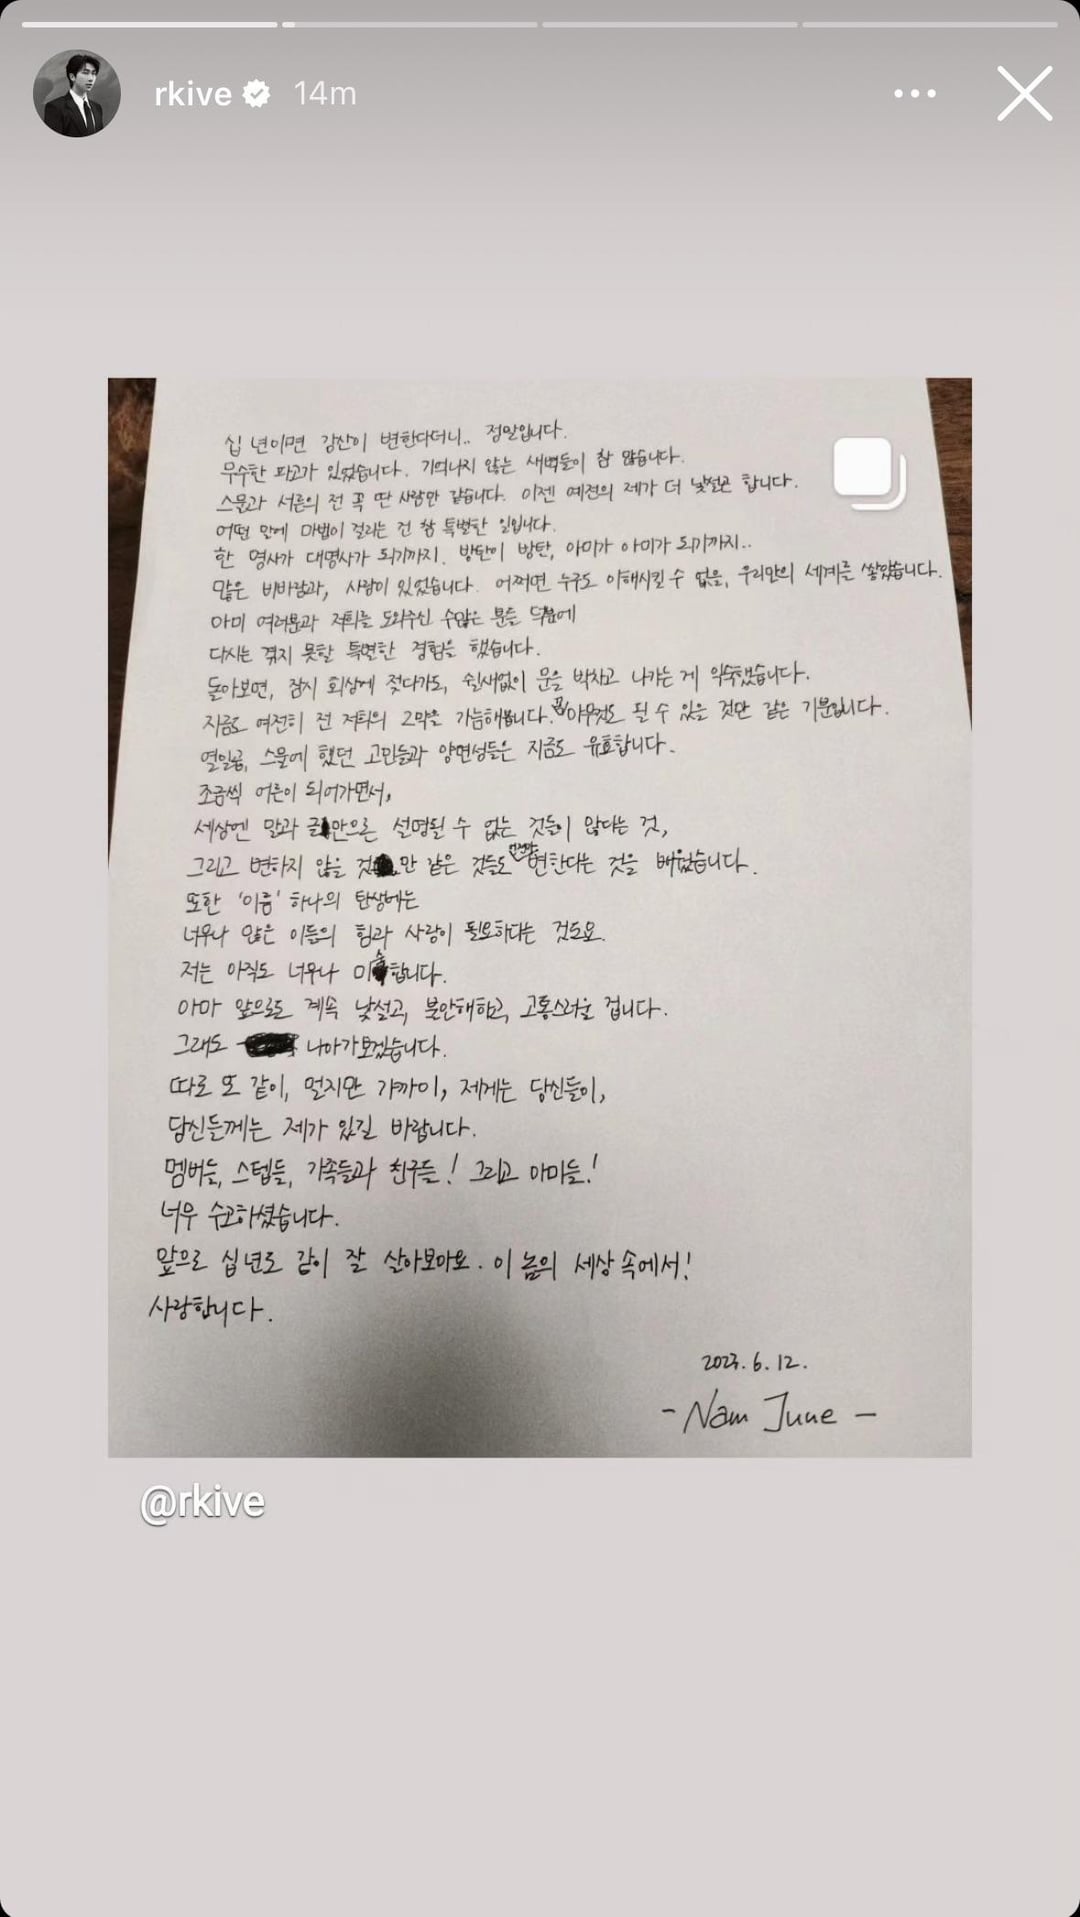 rkive 14m
십 년이면 강산이 변한다더니.. 정말입니다.
무수한 파고가 있었습니다. 기억나지 않는 새벽들이 참 많습니다.
스물과 서른의 전 꼭 딴 사람만 같습니다. 이젠 예전의 제가 더 낯설곤 합니다.
어떤 말에 마법이 걸리는 건 참 특별한 일입니다.
한 명사가 대명사가 되기까지. 방탄이 방탄, 아미가 아미가 되기까지..
많은 비바람과, 사랑이 있었습니다. 어쩌면 누구도 이해시킬 수 없을, 우리만의 세계를 쌓았습니다.
아미 여러분과 저희를 도와주신 수많은 분들 덕분에
다시는 겪지 못할 특별한 경험을 했습니다.
돌아보면, 잠시 회상에 젖다가도, 쉴새없이 문을 박차고 나가는 게 익숙했습니다.
지금도 여전히 전 저희의 2막을 가늠해봅니다. 꼭 아무것도 될 수 있을 것만 같은 기분입니다.
열일곱, 스물에 했던 고민들과 양면성들은 지금도 유효합니다.
조금씩 어른이 되어가면서,
세상엔 말과 글만으론 설명될 수 없는 것들이 많다는 것,
그리고 변하지 않을 것만 같은 것들도 변한다는 것을 배웠습니다.
또한 '이름' 하나의 탄생에는
너무나 많은 이들의 힘과 사랑이 필요하다는 것도요.
저는 아직도 너무나 미숙합니다.
아마 앞으로도 계속 낯설고, 불안해하고, 고통스러울 겁니다.
그래도 나아가보겠습니다.
따로 또 같이, 멀지만 가까이, 제게는 당신들이,
당신들께는 제가 있길 바랍니다.
멤버들, 스텝들, 가족들과 친구들! 그리고 아미들!
너무 수고하셨습니다.
앞으로 십년도 같이 잘 살아보아요. 이 놈의 세상 속에서!
사랑합니다.
2023. 6. 12.
- Nam June -
@rkive